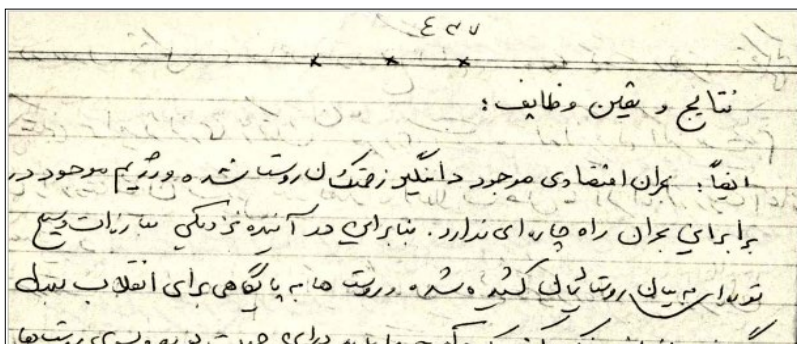 × × ×
نتایج و تعین وظایف:
ایضاً: بحران اقتصادی موجود دامنگیر زحمتکشان روستا شده و رژیم موجود در
برابر این بحران راه چاره ای ندارد. بنابراین در آینده نزدیکی مبارزات وسیع
توده ای به میان روستائیان کشیده شده و روستا ها به پایگاهی برای انقلاب بدل